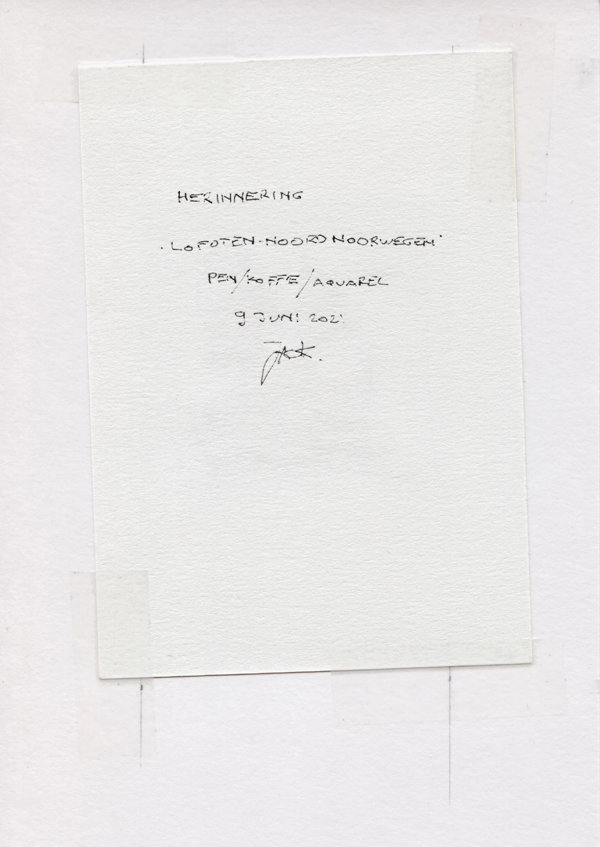 HERINNERING
"LOFOTEN-NOORD NOORWEGEN"
PEN/KOFFE/AQUAREL
9 JUNI 2021